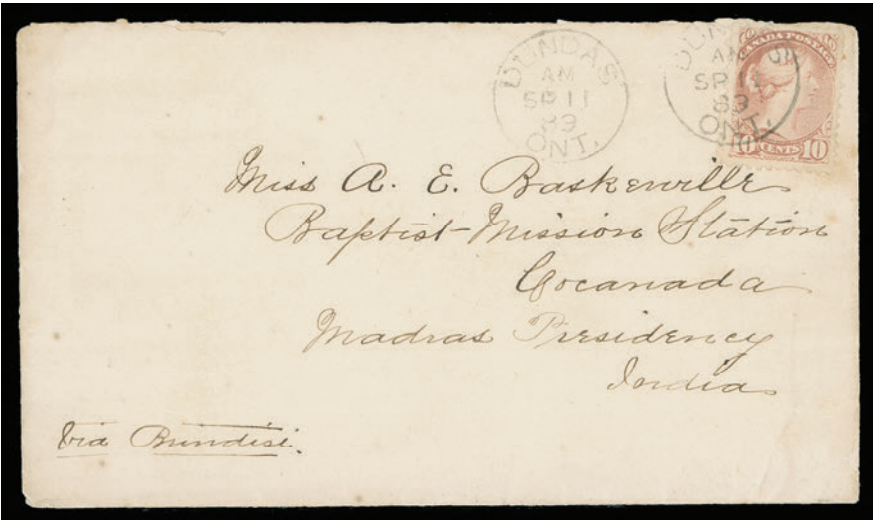 DUNDAS
AM
SP 11
89
ONT.
DUN
AM
SP 11
89
ONT.
CANADA POSTAGE
10 CENTS 10
Miss A. E. Baskerville
Baptist Mission Station
Cocanada
Madras Presidency
India
Via Brindisi.